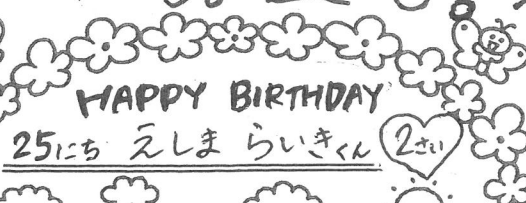 HAPPY BIRTHDAY
25にち えしま らいきくん 2さい